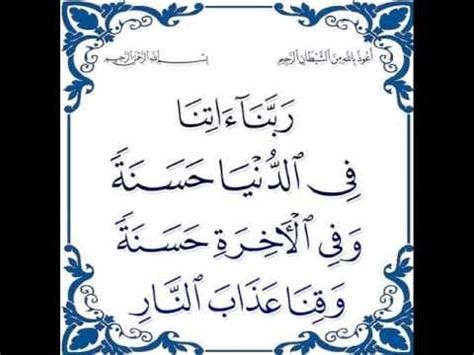 أعوذ بالله من الشيطان الرجيم
بسم الله الرحمن الرحيم
رَبَّنَآ ءَاتِنَا
فِي ٱلدُّنْيَا حَسَنَةً
وَفِي ٱلْأَخِرَةِ حَسَنَةً
وَقِنَا عَذَابَ ٱلنَّارِ